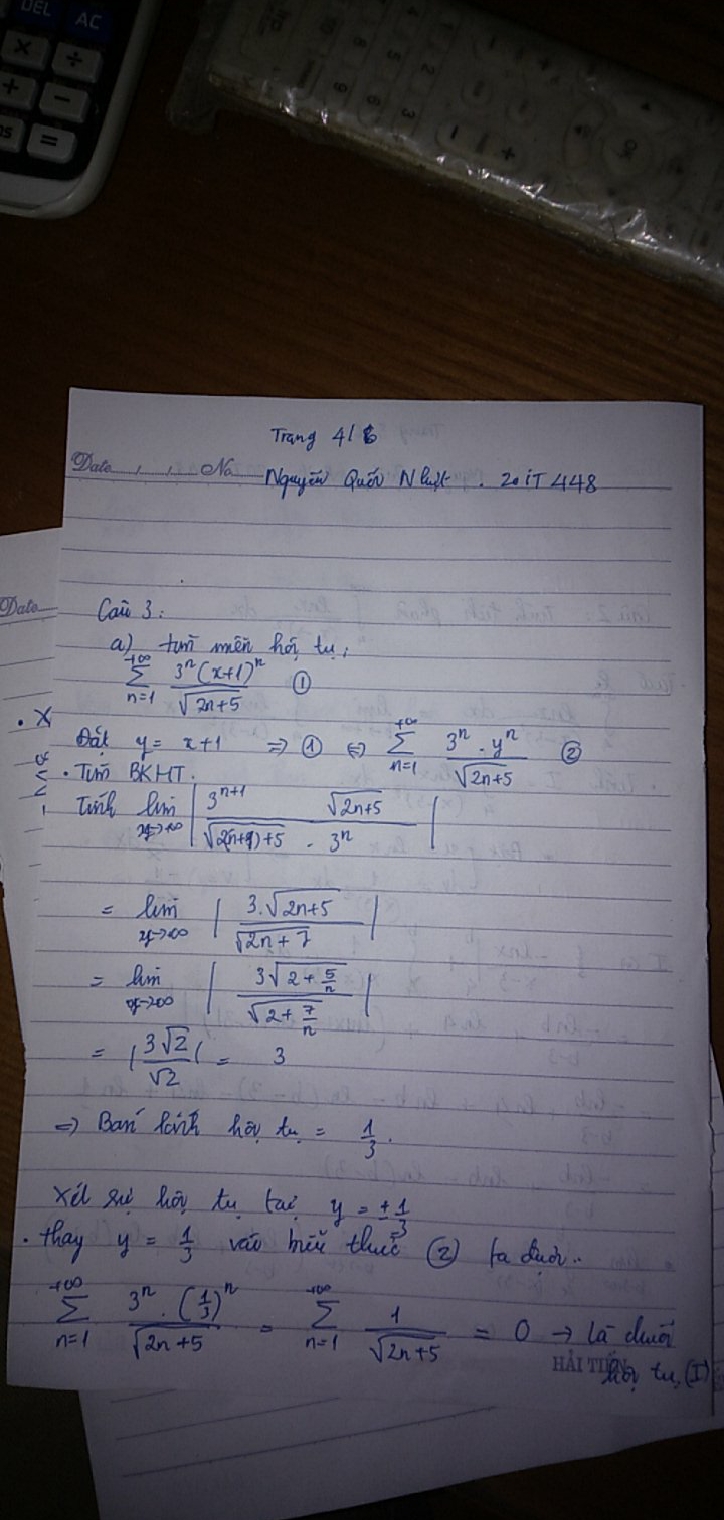 DEL AC
× ÷
+ −
ns =
Trang 4/6
Date , , No
Nguyễn Quốc Nhật . 20IT448
Date
Câu 3:
a) tìm miền hội tụ:
+∞ ∑ n=1 3^n (x+1)^n / √(2n+5) ①
Đặt y = x+1 => ① <=> +∞ ∑ n=1 3^n . y^n / √(2n+5) ②
. Tìm BKHT.
Tính lim | 3^(n+1) √(2n+5) / √(2(n+1)+5) . 3^n |
= lim | 3.√(2n+5) / √(2n+7) |
= lim | 3√(2+5/n) / √(2+7/n) |
= |3√2 / √2| = 3
=> Bán kính hội tụ = 1/3.
Xét sự hội tụ tại y = ±1/3
. thay y = 1/3 vào biểu thức ② ta được..
+∞ ∑ n=1 3^n . (1/3)^n / √(2n+5) = +∞ ∑ n=1 1 / √(2n+5) = 0 → là chuỗi
HẢI TIẾN hội tụ (I)